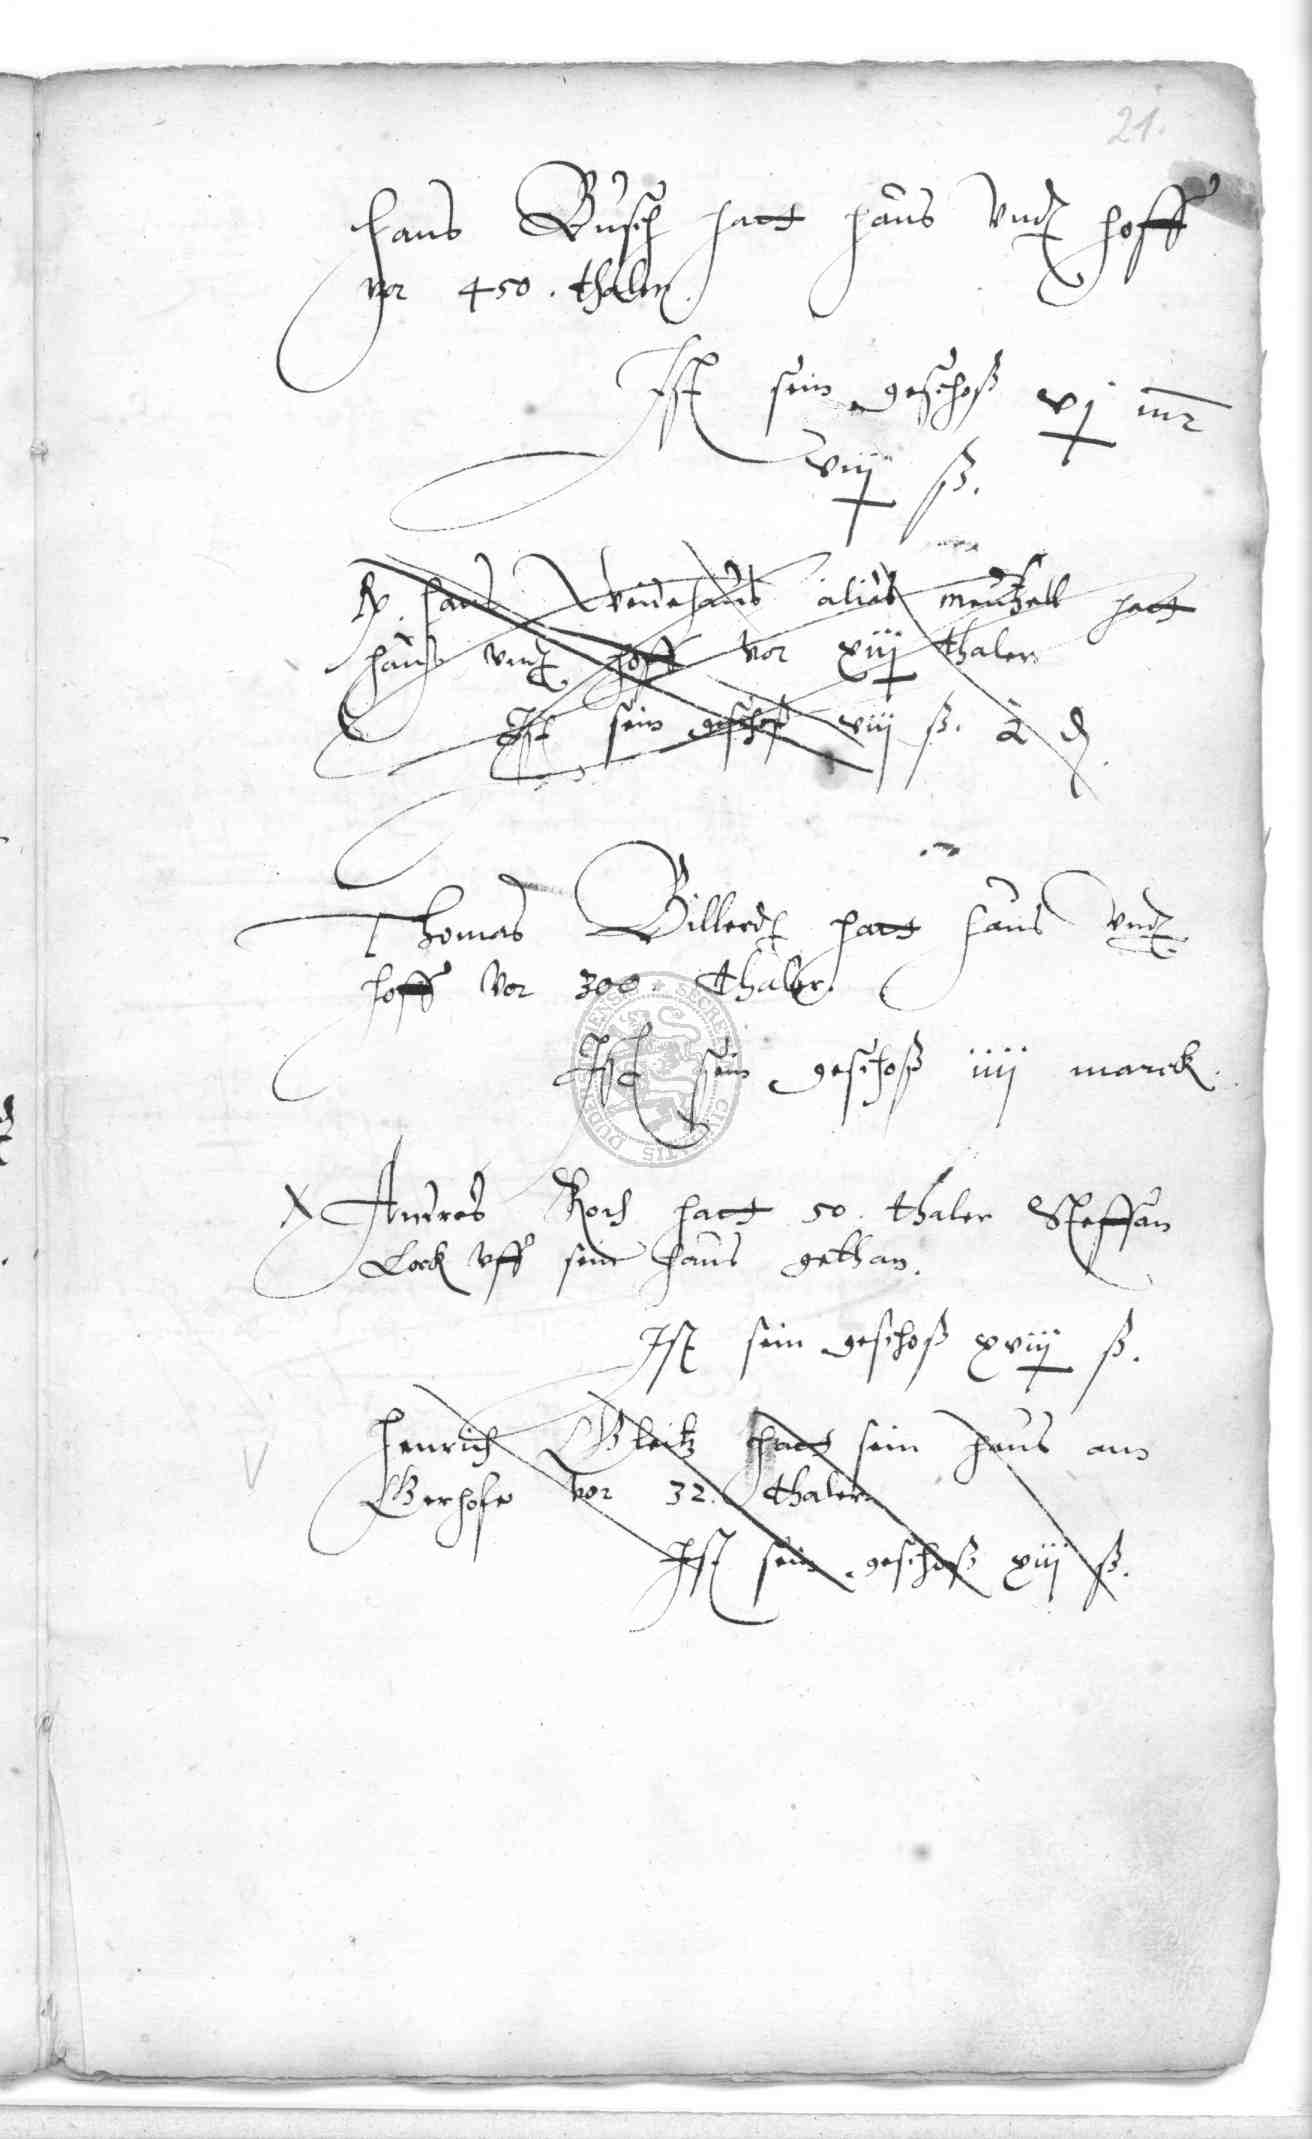 21.
Hans Busch hatt haus vnd hoff
vor 450. thaler.
Ist sein geschoß vj mr
viij ß.
hans alias hatt
haus vnd hoff vor xiij thaler
Ist sein geschoß viij ß. 2 d.
Thomas Billerd hatt haus vnd
hoff vor 300. thaler.
Ist sein geschoß iiij marck.
Andres Koch hatt 50. thaler Steffan
Lock vff sein haus gethan.
Ist sein geschoß xviij ß.
Henrich Gleitz hatt sein haus am
vor 32. thaler
Ist sein geschoß xiij ß.